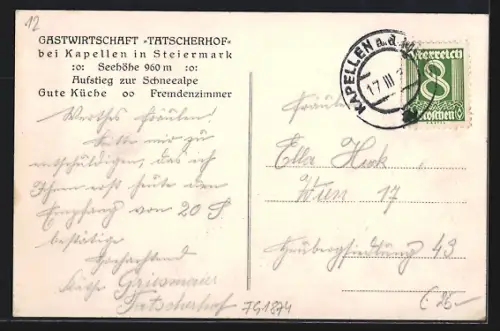 12
GASTWIRTSCHAFT "TATSCHERHOF"
bei Kapellen in Steiermark
:o: Seehöhe 960 m :o:
Aufstieg zur Schneealpe
Gute Küche oo Fremdenzimmer
Werthes Fräulein!
Bitte mir zu
entschuldigen, das ich
Ihnen erst heute den
Empfang von 20 S
bestätige
Hochachtend
Griesmaier
Tatscherhof
KAPELLEN a.d.
17 III
Österreich
8
Groschen
Fräulein
Ella
Wien 17
43
FG1874
(25-